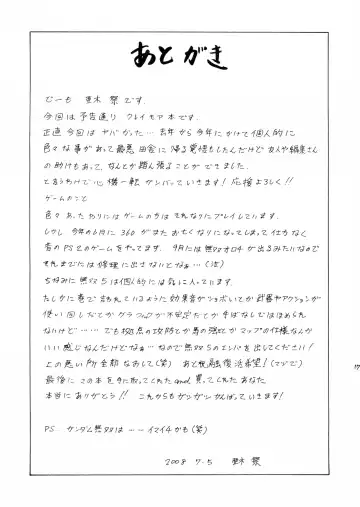 あとがき
どーも 並木 祭です。
今回は予告通り クレイモア本です。
正直今回は ヤバかった… 去年から今年にかけて個人的に
色々な事があって最悪 田舎に帰る覚悟もしたんだけど 友人や編集さん
の助けもあって、なんとか踏ん張ることができました。
と言うわけで心機一転 ガンバっていきます! 応援よろしく!!
ゲームのこと
色々あったわりにはゲームの方は それなりにプレイしています。
しかし 今年の6月に360がまた お亡くなりになってしまって仕方なく
昔のPS2のゲームをやってます。 9月には無双オロチが出るみたいなので
それまでには修理に出さないとなぁ…(泣)
ちなみに無双5は個人的には気に入っています。
たしかに巷で言われているように効果音がショボいとか武器やアクションが
使い回しだとか グラフィックが不安定だとか 手ばなしではほめられ
ないけど……でも拠点の攻防とか馬の強さとかマップの仕様なんか
いい感じなんだけどなぁ… なので無双5のエンパを出してください!
上の悪い所全部なおして(笑) あと 復活希望!(マジで)
最後に この本を手に取ってくれたand 買ってくれたあなた
本当にありがとう!! これからもガンガンがんばっていきます!
PS. ガンダム無双は……イマイチかも(笑)
2008 7.5 並木 祭
17